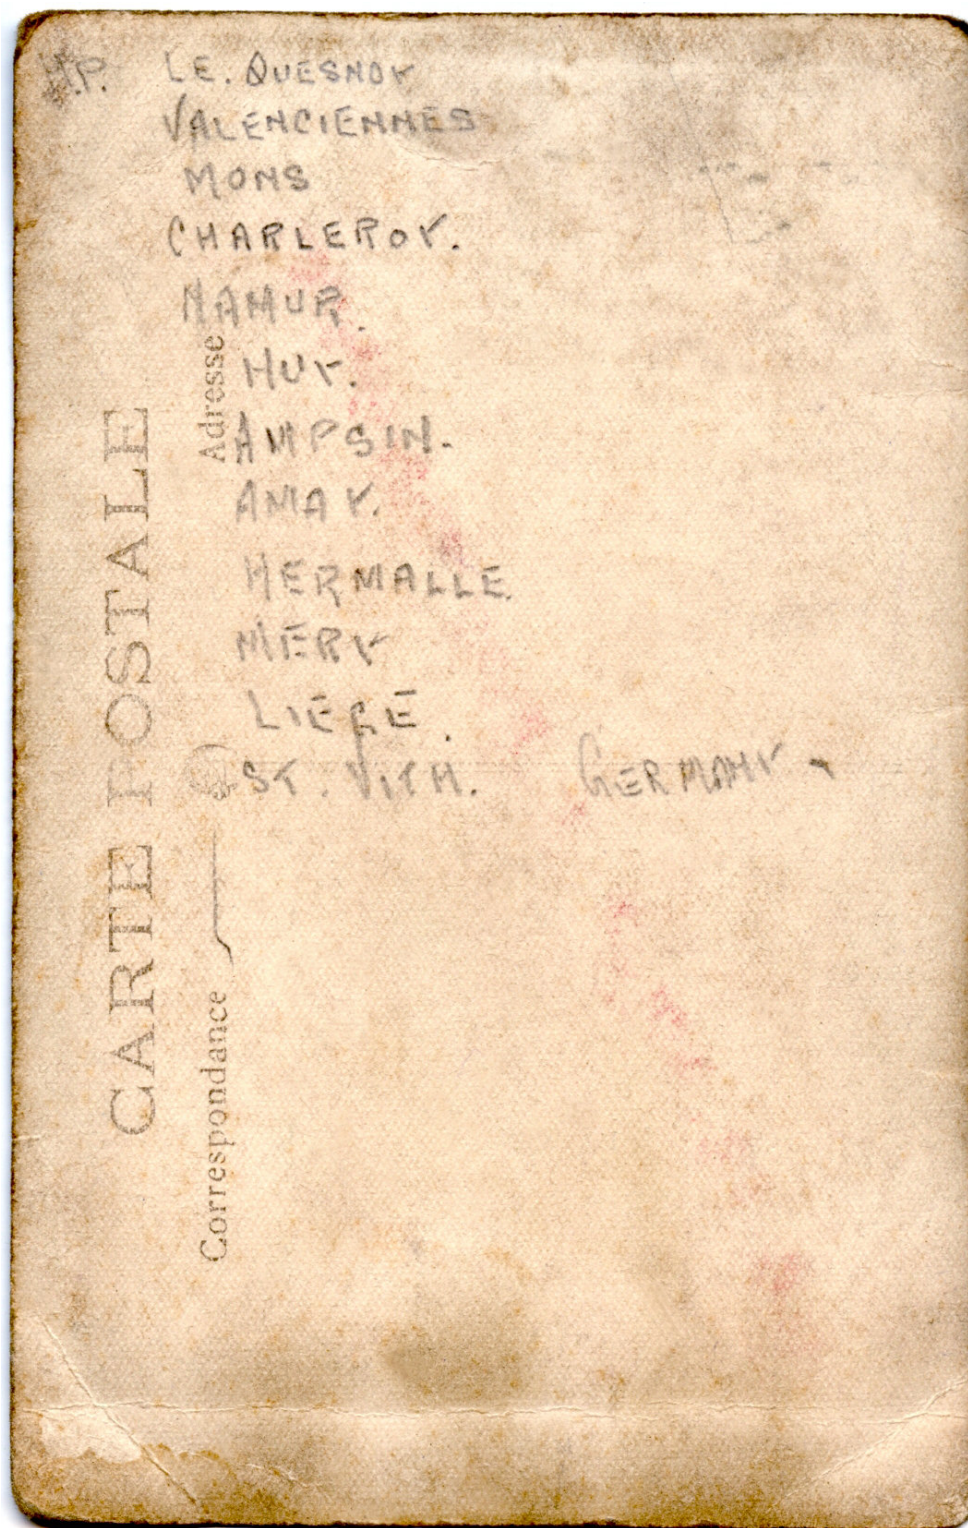 LE. QUESNOY
VALENCIENNES
MONS
CHARLEROY.
NAMUR.
HUY.
AMPSIN.
AMAY.
HERMALLE.
MERY
LIEGE.
ST. VITH. GERMANY
CARTE POSTALE
Correspondance
Adresse